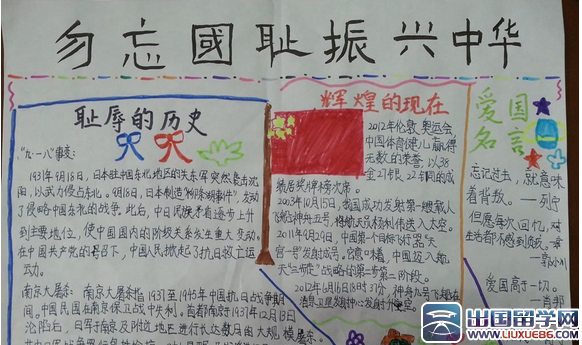 勿忘國耻振兴中华
耻辱的历史
"九·一八"事变:
1931年9月18日,日本驻中国东北地区的关东军突然袭击沈
阳,以武力侵占东北。9月18日,日本制造"柳条湖事件",发动
了侵略中国东北的战争。此后,中日民族矛盾逐步上升
到主要地位,使中国国内的阶级关系发生重大变动。
在中国共产党的号召下,中国人民掀起了抗日救亡运
动。
南京大屠杀: 南京大屠杀指1937至1945年中国抗日战争期
间,中国民国在南京保卫战中失利。首都南京于1937年12月13日
沦陷后,日军于南京及附近地区进行长达数月由大规模屠杀。
辉煌的现在
2012年伦敦奥运会,
中国体育健儿赢得
无数的荣誉,以38
金27银22铜的成
绩居奖牌榜次席。
2003年10月15日,我国成功发射第一艘载人
飞船神舟五号,将航天员杨利伟送入太空。
2011年9月29日,中国第一个目标飞行器"天
宫一号"发射成号。宫意味着,中国迈入航
天"三步走"战略的第二步第一阶段。
2012年6月16日18时37分,神舟九号飞船在
酒泉卫星发射中心发射升空
爱国
名言
忘记过去,就意味
着背叛。—列宁
但愿每次回忆,对
生活都不感到负疚。
—郭小川
爱国高于一切。
—肖邦
出国留学网
WWW.LIUXUE86.COM